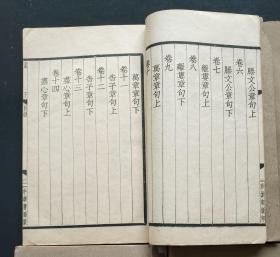 滕文公章句上
卷六
滕文公章句下
卷七
離婁章句上
卷八
離婁章句下
卷九
萬章章句上
卷十
萬章章句下
卷十一
告子章句上
卷十二
告子章句下
卷十三
盡心章句上
卷十四
盡心章句下